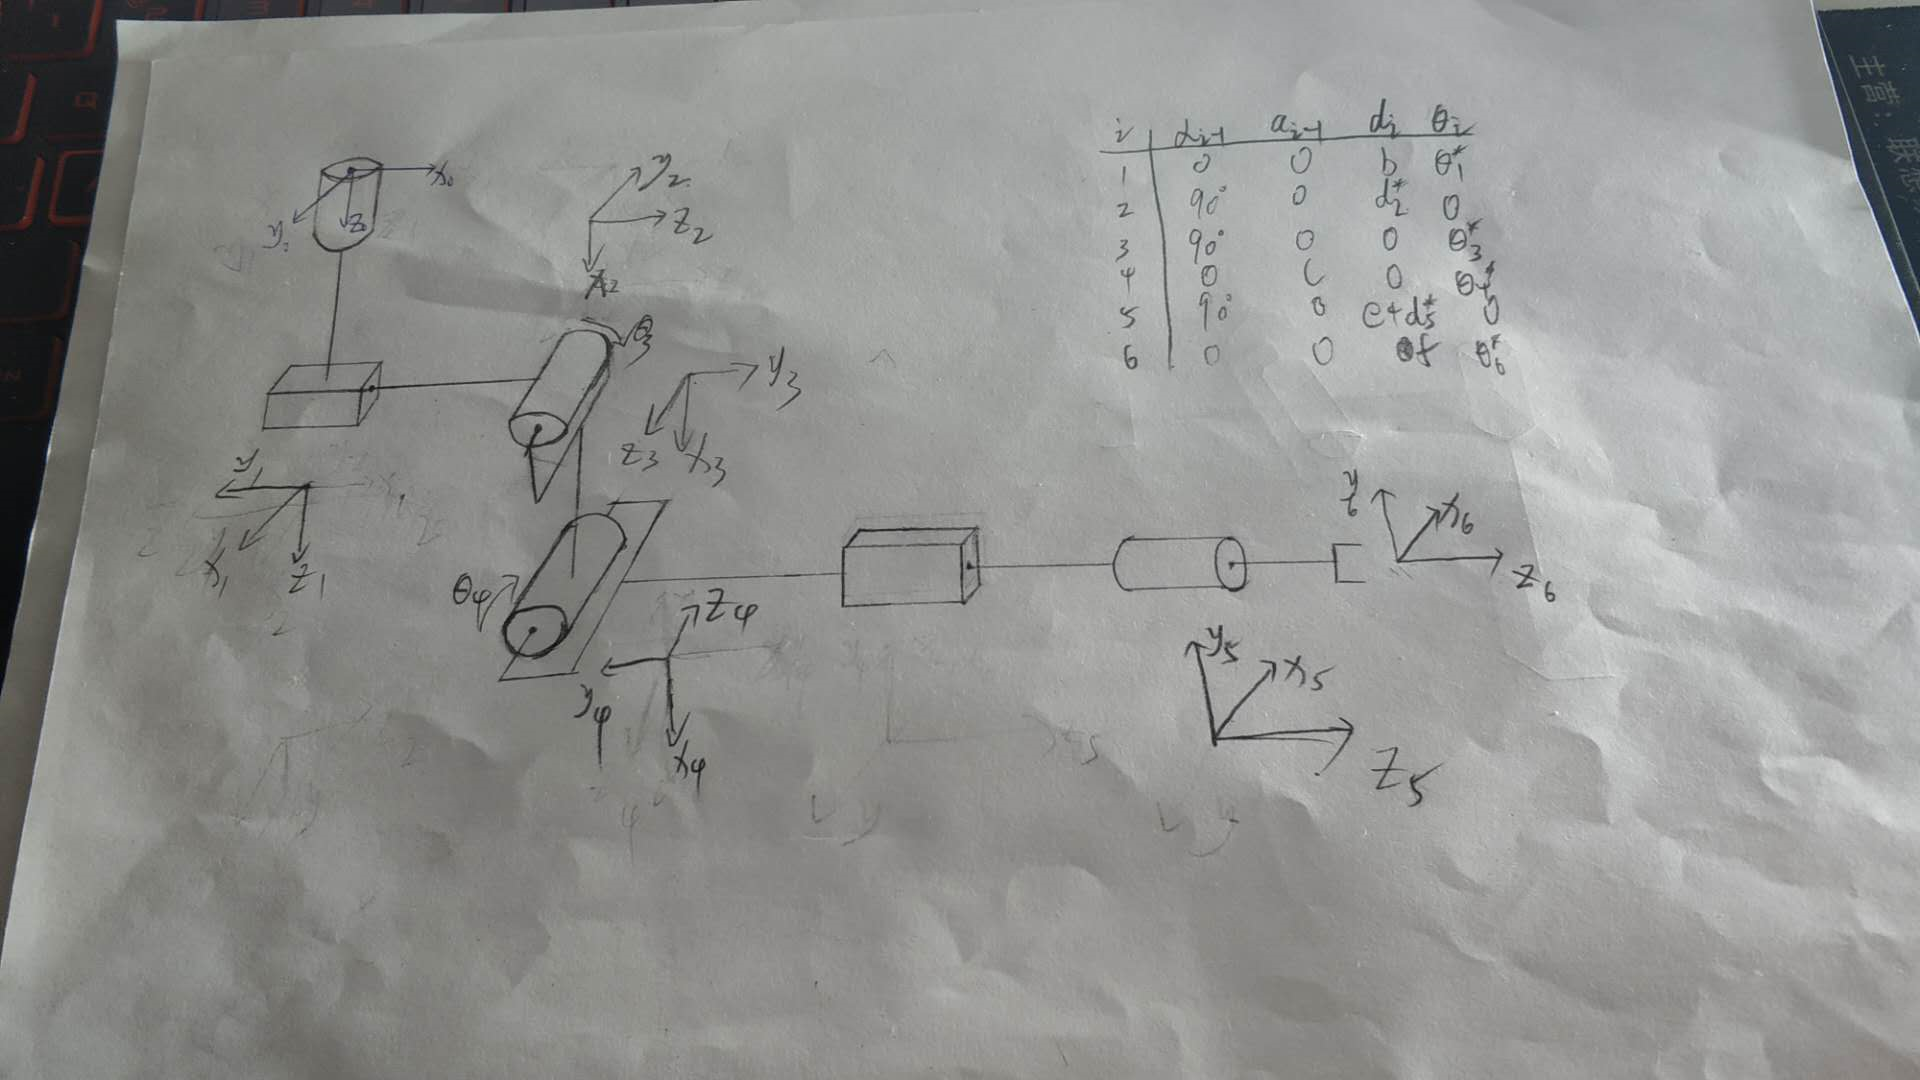 i αi-1 ai-1 di θi
1 0 0 b θ1*
2 90° 0 d2* 0
3 90° 0 0 θ3*
4 0 c 0 θ4*
5 90° 0 e+d5* 0
6 0 0 f θ6*
x0
z0
y2
z2
x2
θ3
y3
z3
x3
y1
x1
z1
θ4
z4
y4
x4
y6
x6
z6
y5
x5
z5
主营：联想